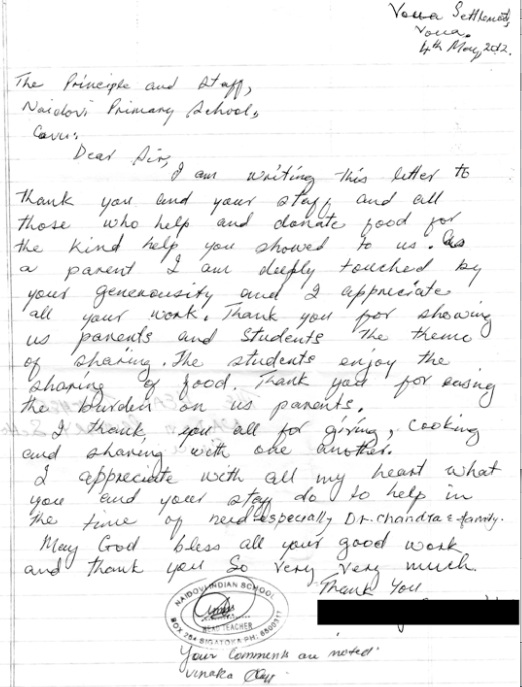 Voua Settlement,
Voua.
4th May, 2012.
The Principle and Staff,
Naidovi Primary School,
Cuvu.
Dear Sir,
I am writing this letter to
thank you and your staff and all
those who help and donate food for
the kind help you showed to us. As
a parent I am deeply touched by
your generousity and I appreciate
all your work. Thank you for showing
us parents and students the theme
of sharing. The students enjoy the
sharing of food. Thank you for easing
the burden on us parents.
I thank you all for giving, cooking
and sharing with one another.
I appreciate with all my heart what
you and your staff do to help in
the time of need especially Dr. Chandra & family.
May God bless all your good work
and thank you so very very much.
Thank You
NAIDOVI INDIAN SCHOOL
HEAD TEACHER
BOX 254 SIGATOKA PH: 6500311
Your comments are noted.
Vinaka